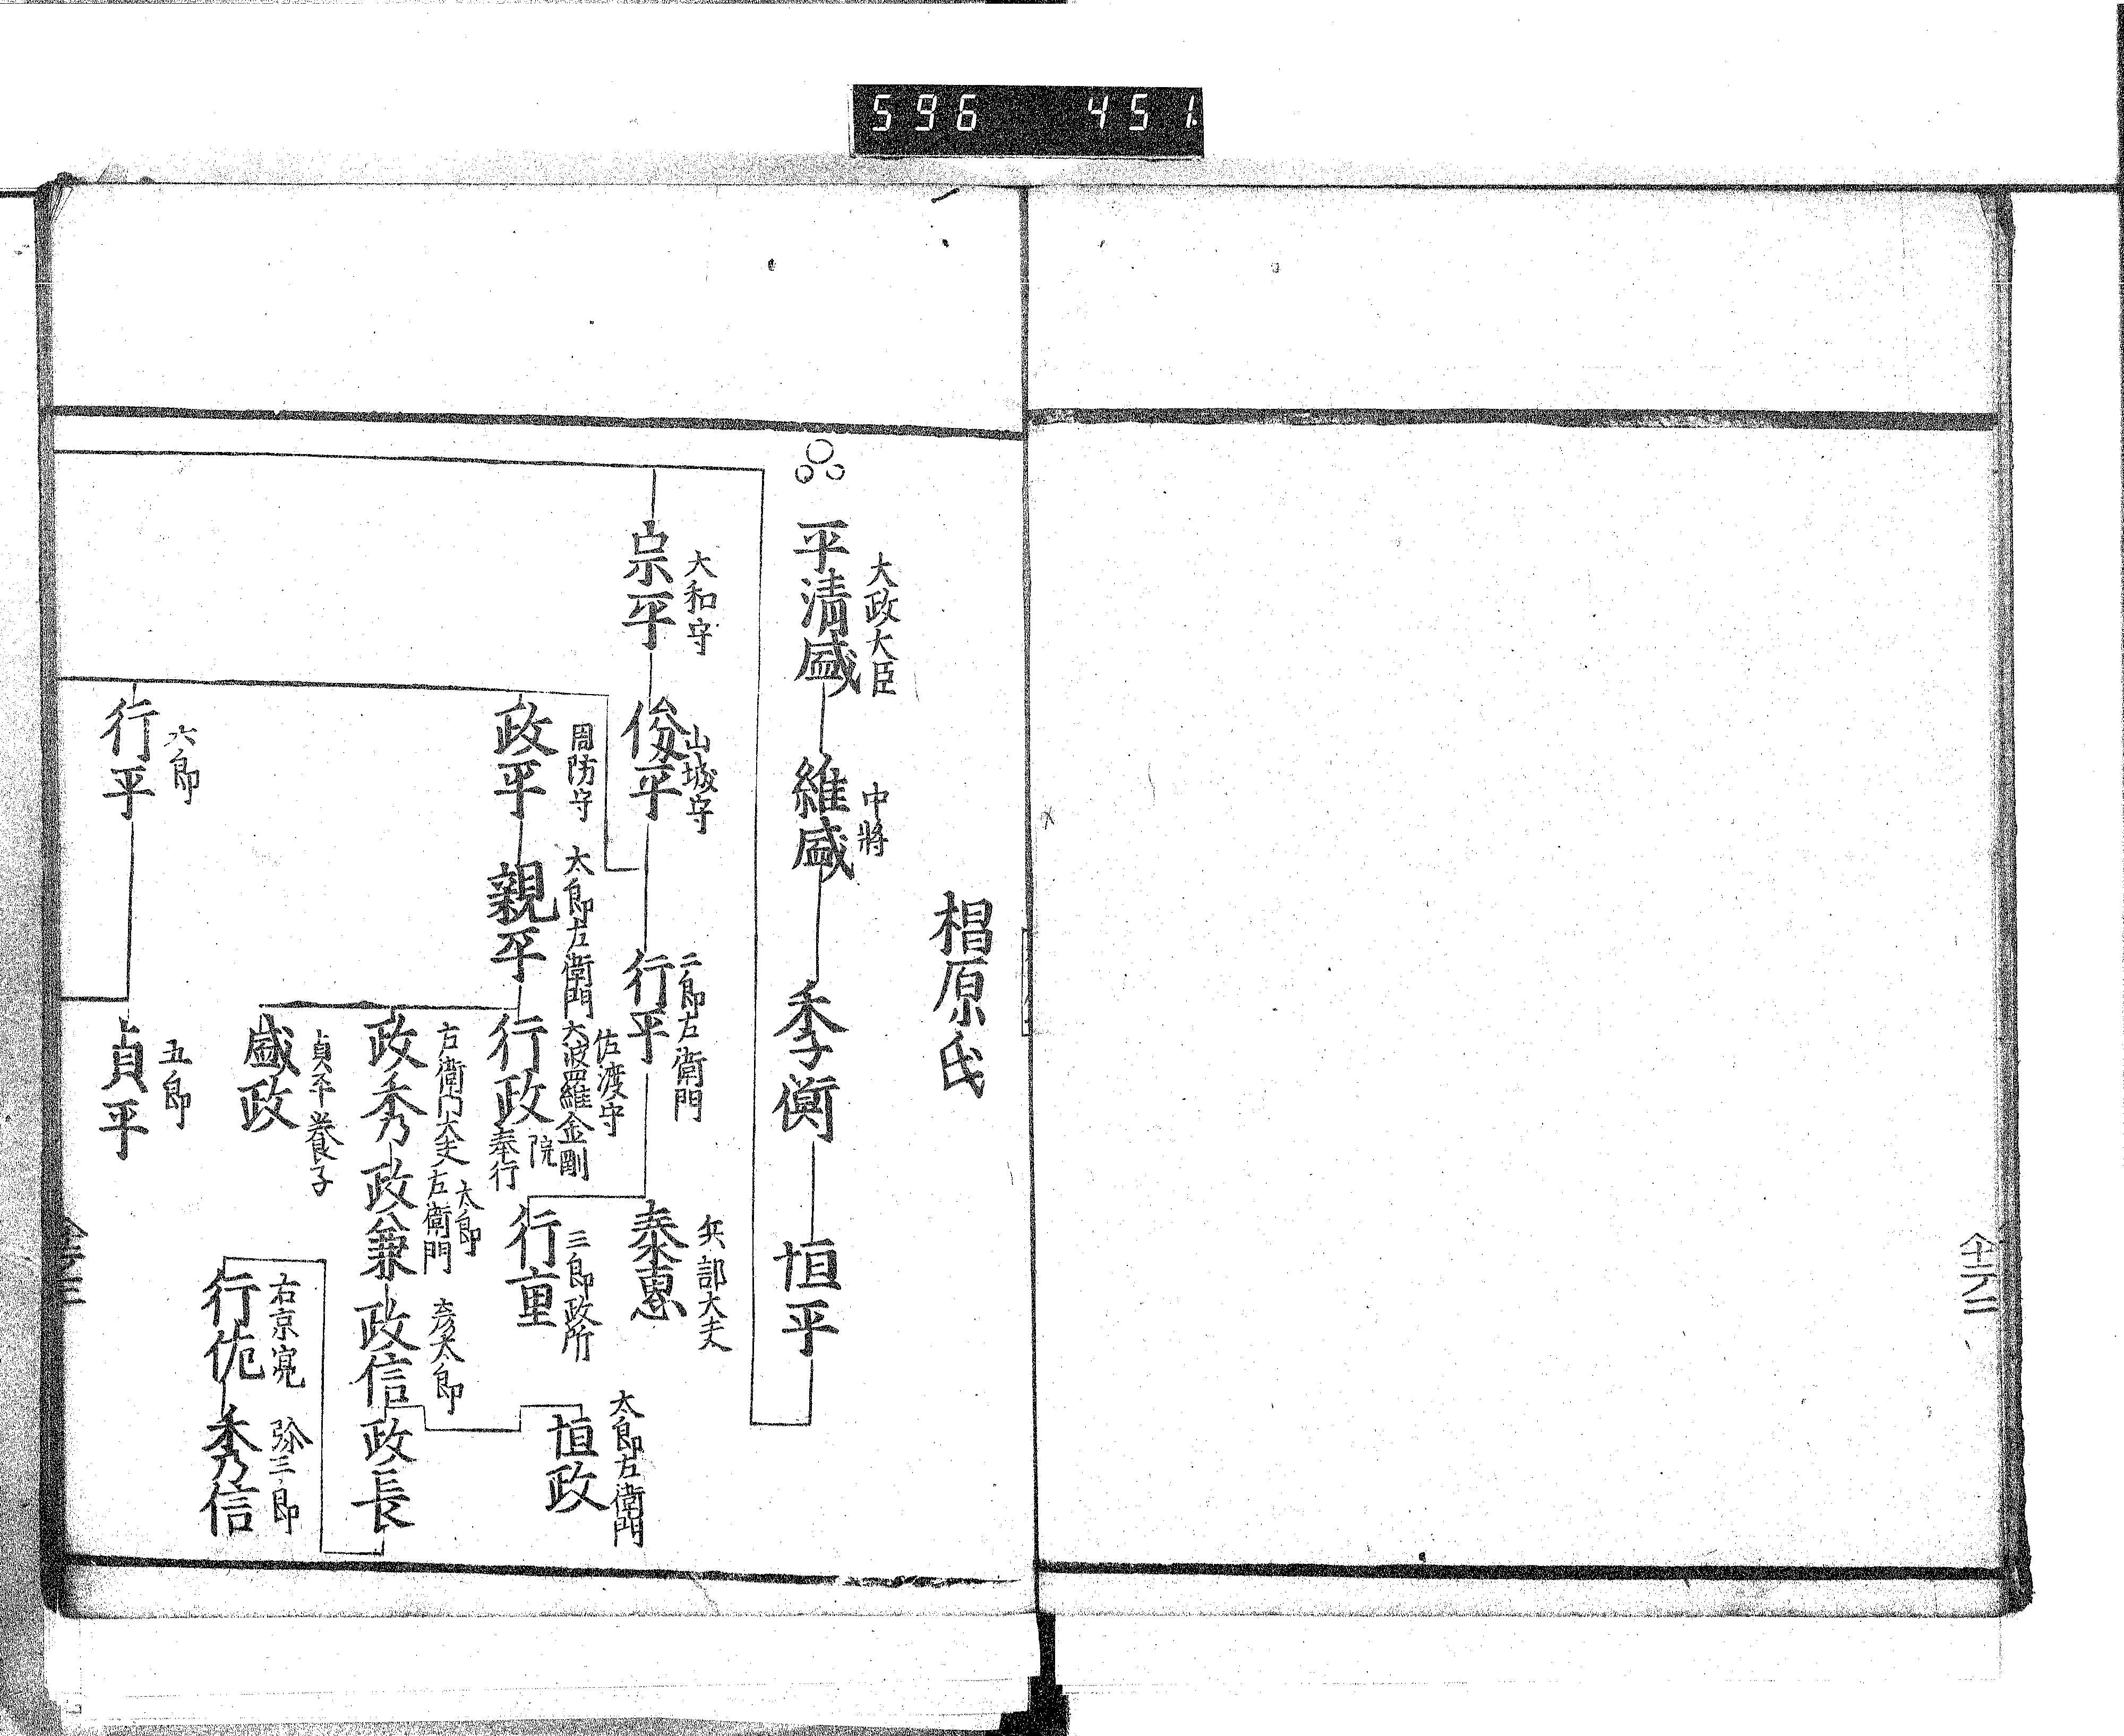 596 451
椙原氏
大政大臣
平清盛
中將
維盛
季衡
恒平
大和守
宗平
山城守
俊平
二郎左衛門
行平
兵部大夫
泰惠
三郎政所
行重
周防守
政平
太郎左衛門
親平
佐渡守
六波羅維金剛
行政
院
奉行
太郎左衛門
恒政
右衛門大夫
政秀
太郎
左衛門
政兼
彦太郎
政信
政長
貞平養子
盛政
右京亮
行佐
弥三郎
秀信
六郎
行平
五郎
貞平